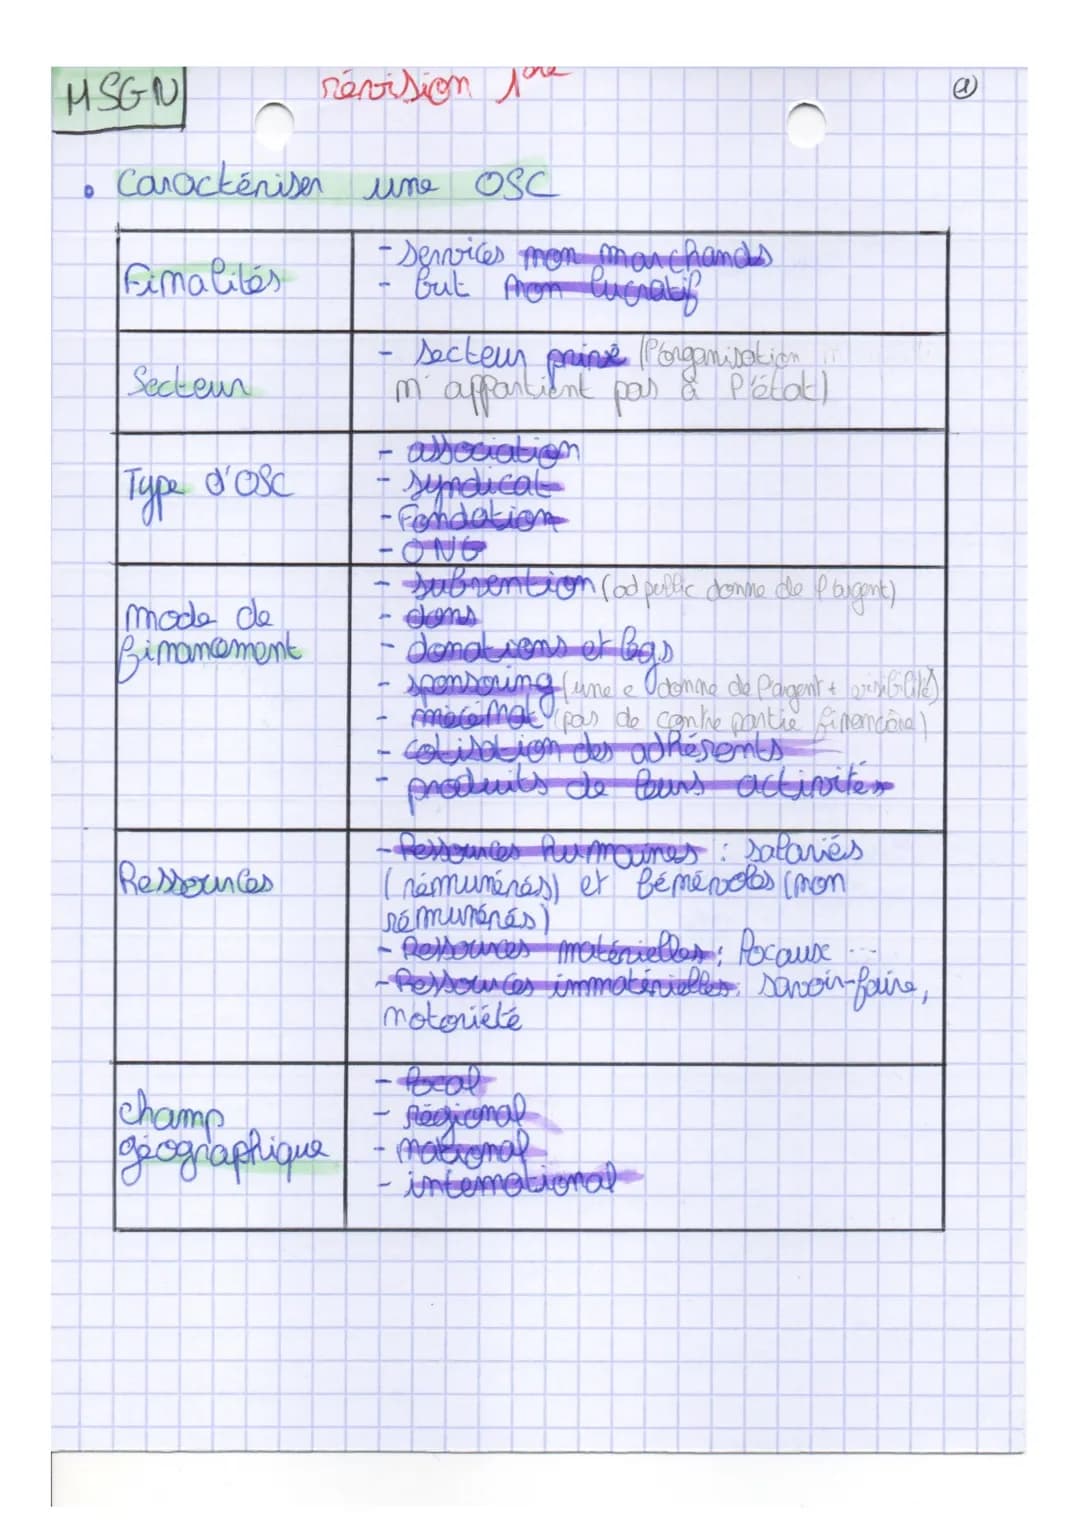 MSGN
révision 1ère
①
• Caractériser une OSC
Finalités
- services non marchands
- but non lucratif
Secteur
- secteur privé (l'organisation
n'appartient pas à l'état)
Type d'OSC
- association
- syndicat
- Fondation
- ONG
mode de
financement
- subvention (od public donne de l'argent)
- dons
- donations et legs
- sponsoring (une e donne de l'argent + visibilité)
- mécénat (pas de contre partie financière)
- cotisation des adhérents
- produits de leurs activités
Ressources
- Ressources humaines : salariés
(rémunérés) et bénévoles (non
rémunérés)
- Ressources matérielles : locaux ...
- Ressources immatérielles: savoir-faire,
notoriété
champ
géographique
- local
- régional
- national
- international